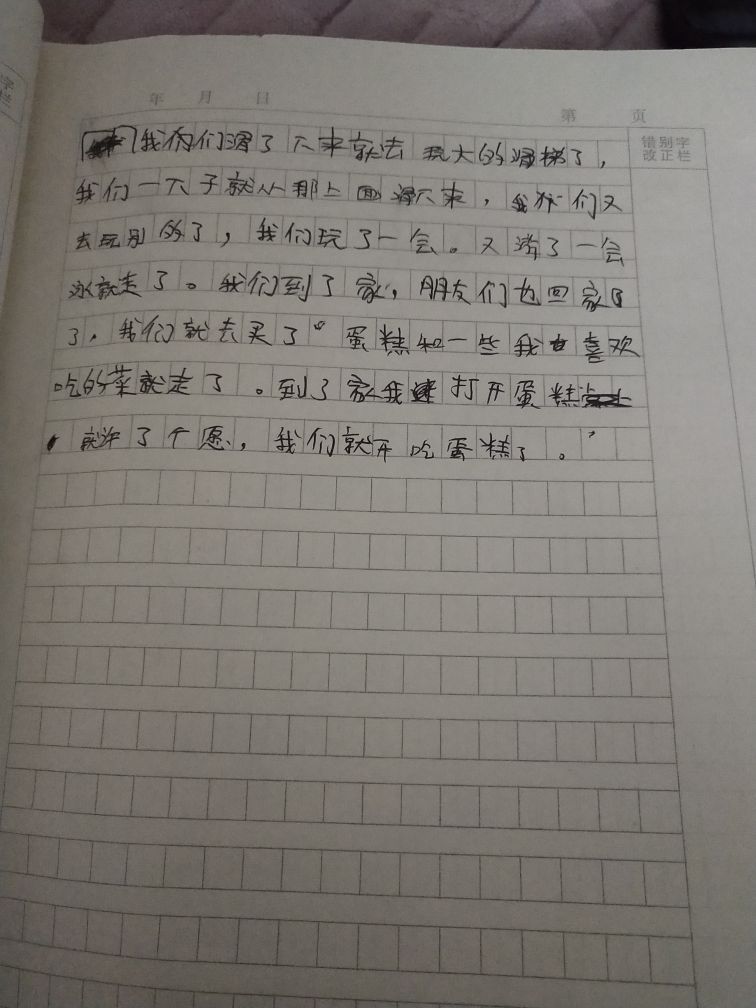 年 月 日
第 页
错别字
改正栏
我们滑了下来就去玩大的滑梯了，
我们一下子就从那上面滑下来，我们又
去玩别的了，我们玩了一会。又游了一会
泳就走了。我们到了家，朋友们也回家
了，我们就去买了蛋糕和一些我喜欢
吃的菜就走了。到了家我打开蛋糕
就许了个愿，我们就开吃蛋糕了。